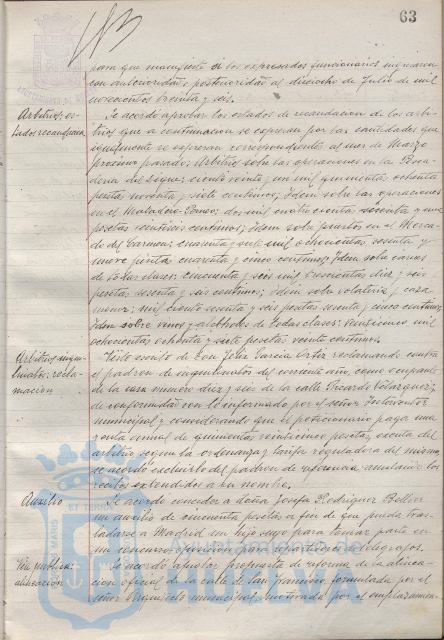 63
para que manifieste si los expresados funcionarios ingresaron
con anterioridad o posterioridad al dieciocho de Julio de mil
novecientos treinta y seis.
Arbitrios, es-
tados recaudación
Se acordó aprobar los estados de recaudación de los arbi-
trios que a continuación se expresan por las cantidades que
igualmente se expresan correspondientes al mes de Marzo
próximo pasado: Arbitrio sobre las operaciones en la Pesca-
dería del Dique: ciento veinte, un mil quinientos ochenta
pesetas noventa y siete centimos; Idem sobre las operaciones
en el Matadero: dos mil cuatrocientas sesenta y una
pesetas centimos; Idem sobre puestos en el Merca-
do del Carmen: cuarenta y siete mil ochocientas sesenta y
nueve pesetas cuarenta y cinco centimos; Idem sobre carnes
de todas clases: cincuenta y seis mil trescientas diez y seis
pesetas sesenta y seis centimos; Idem sobre volatería y caza
menor: mil ciento sesenta y seis pesetas setenta y cinco centimos;
Idem sobre vinos y alcoholes de todas clases: veinticinco mil
ochocientas ochenta y siete pesetas veinte centimos.
Arbitrios, inqui-
linatos, recla-
mación
Visto escrito de Don Felix García Ortiz reclamando contra
el padrón de inquilinatos del corriente año, como ocupante
de la casa número diez y seis de la calle Ricardo Velazquez;
de conformidad con lo informado por el señor Interventor
municipal y considerando que el peticionario paga una
renta anual de quinientas veinticinco pesetas, exenta del
arbitrio según la ordenanza y tarifa reguladora del mismo,
se acordó excluirlo del padrón de referencia, anulando los
recibos extendidos a su nombre.
Auxilio
Se acordó conceder a Doña Josefa Rodriguez Bellver
un auxilio de cincuenta pesetas a fin de que pueda tras-
ladarse a Madrid un hijo suyo para tomar parte en
un concurso oposición para repartidores de telégrafos.
Vía pública,
alineación
Se acordó aprobar propuesta de reforma de la alinea-
ción oficial de la calle de San Francisco, formulada por el
señor Arquitecto municipal, motivada por el emplazamien-